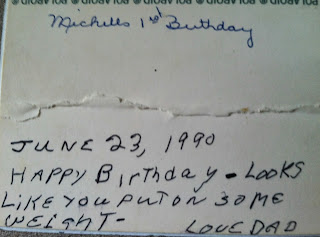 ® POLAROID ® POLAROID ® POLAROID ®
Michells 1st Birthday
JUNE 23, 1990
HAPPY Birthday - LOOKS
LIKE YOU PUT ON SOME
WEIGHT-
LOVE DAD